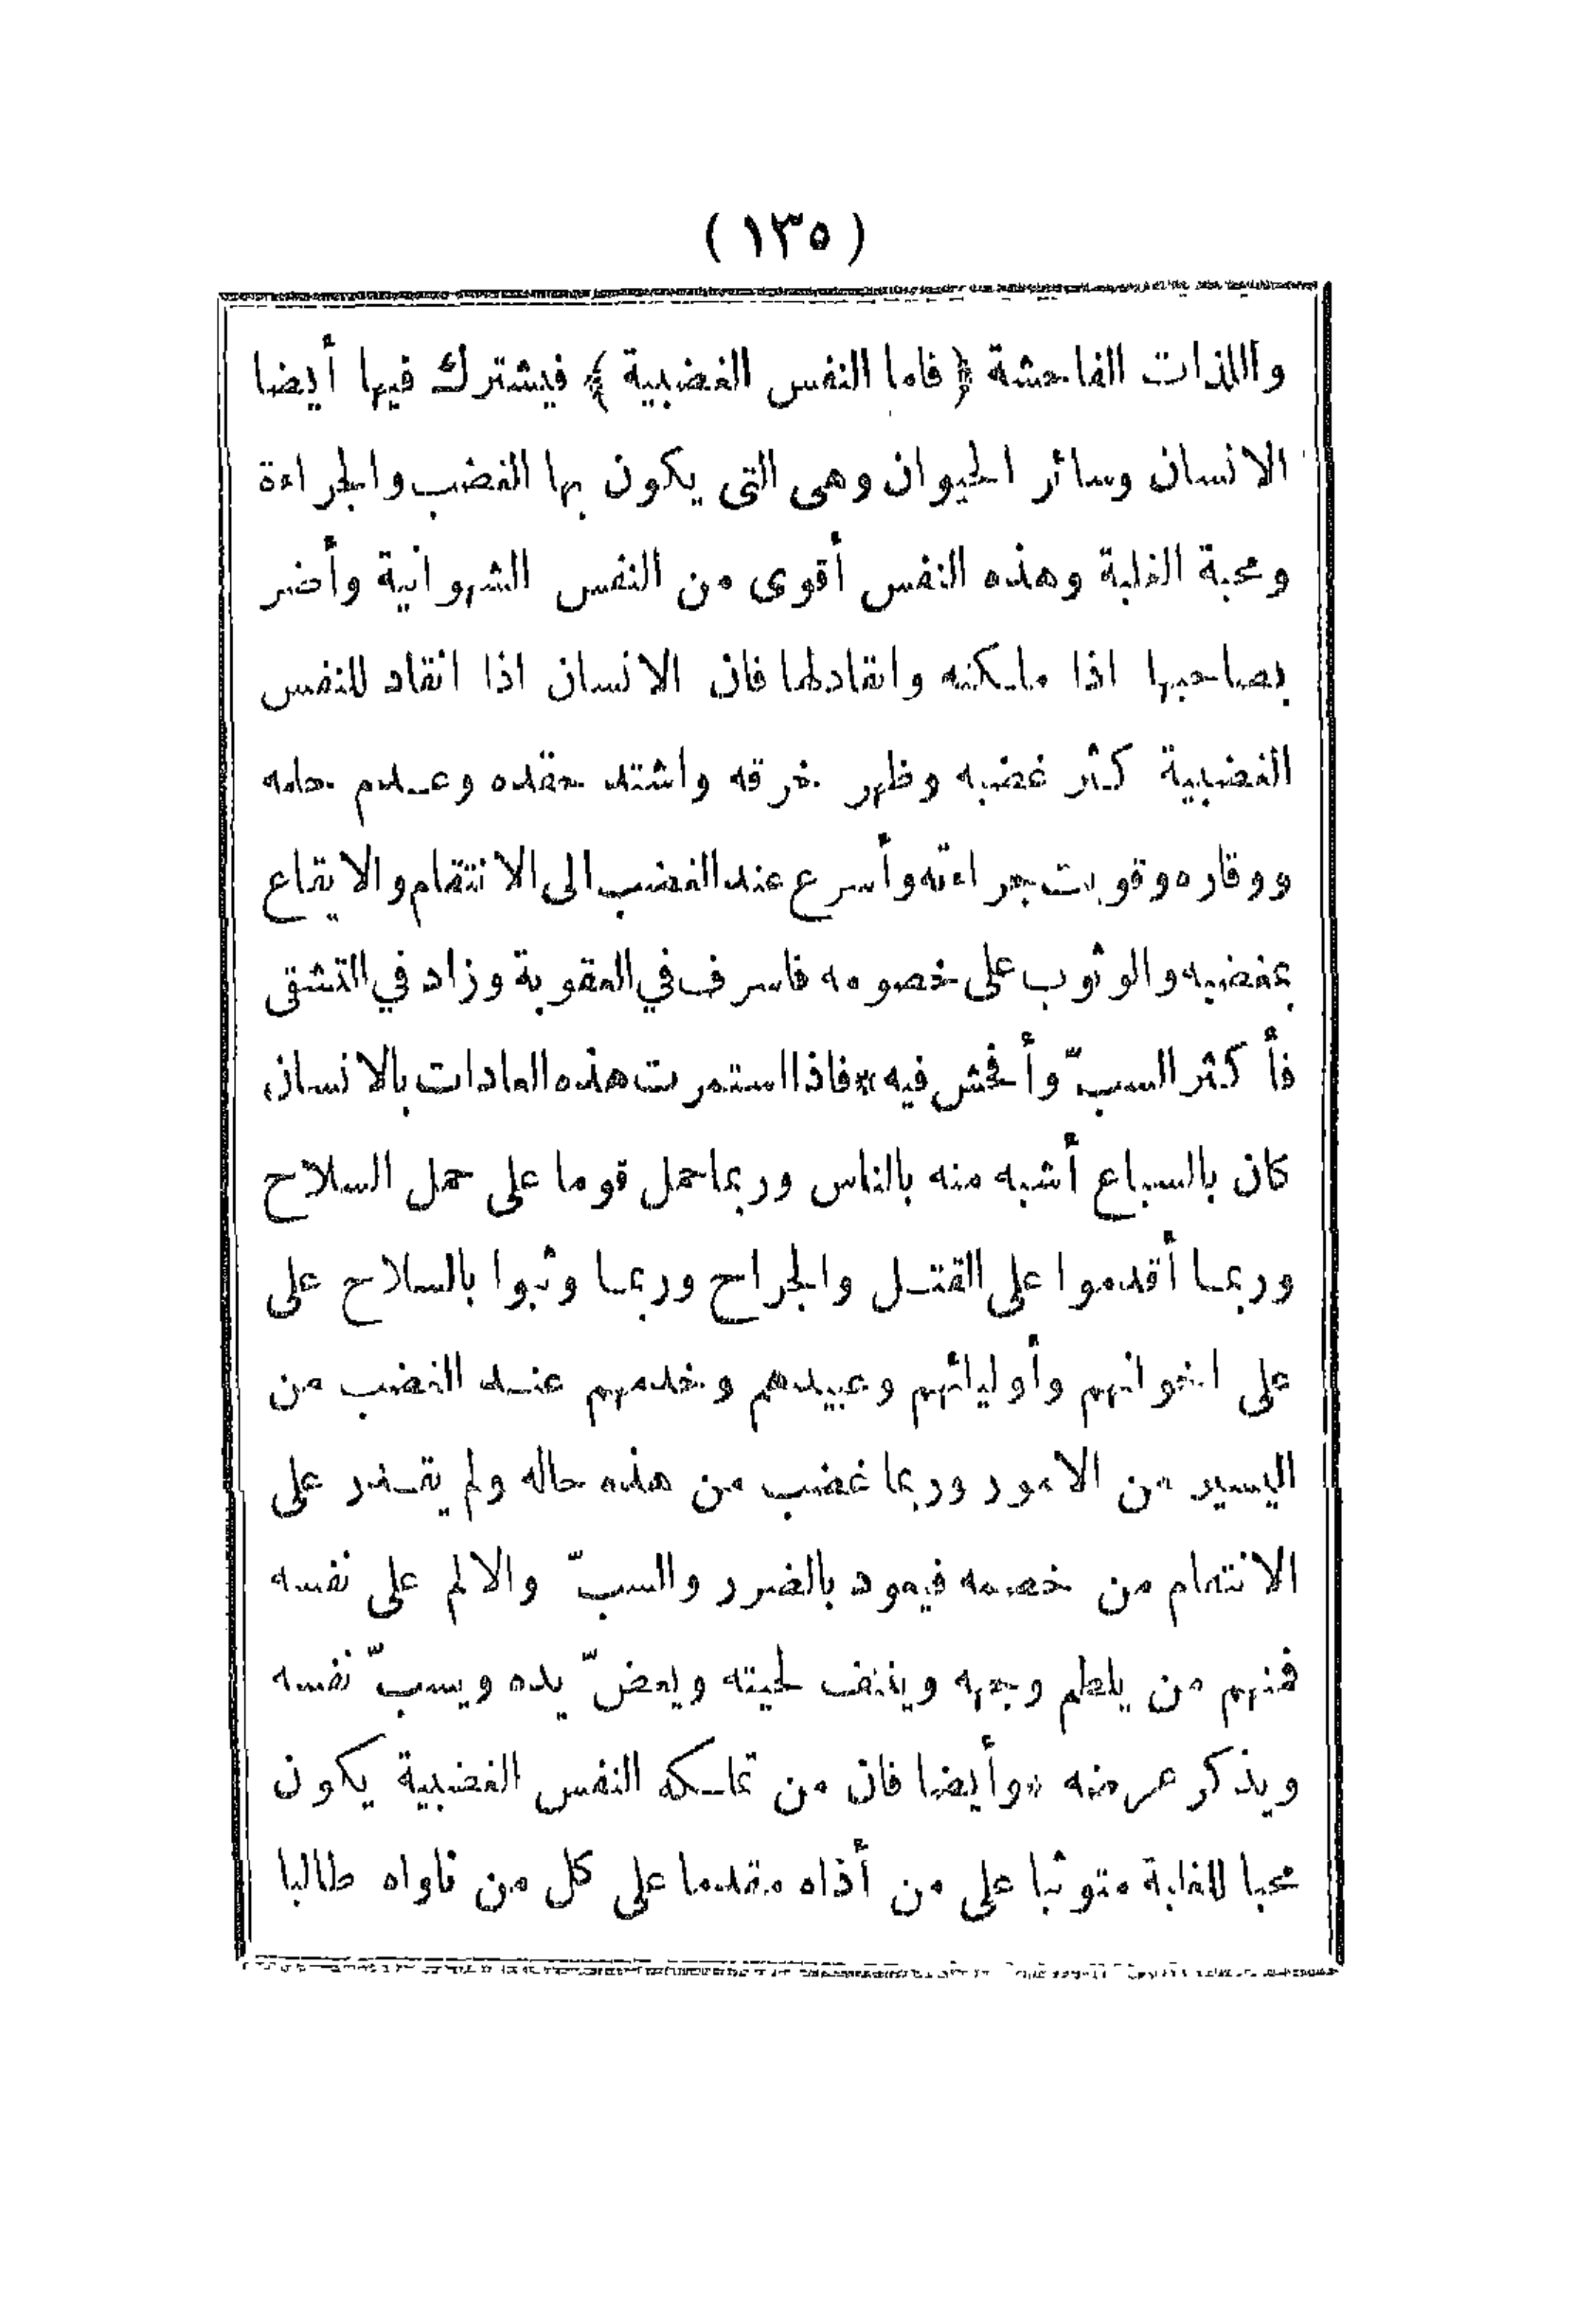 ( ١٣٥ )
واللذات الفاحشة ﴿ فاما النفس الغضبية ﴾ فيشترك فيها أيضا
الانسان وسائر الحيوان وهى التى يكون بها الغضب والجراءة
ومحبة الغلبة وهذه النفس أقوى من النفس الشهوانية وأضر
بصاحبها اذا ملكته وانقاد لها فان الانسان اذا انقاد للنفس
الغضبية كثر غضبه وظهر خرقه واشتد حقده وعدم حلمه
ووقاره وقويت جراءته وأسرع عند الغضب الى الانتقام والايقاع
بمغضبه والوثوب على خصومه فاسرف في العقوبة وزاد في التشفى
فأكثر السبّ وأفحش فيه * فاذا استمرت هذه العادات بالانسان
كان بالسباع أشبه منه بالناس وربما حمل قوما على حمل السلاح
وربما أقدموا على القتل والجراح وربما وثبوا بالسلاح على
على اخوانهم وأوليائهم وعبيدهم وخدمهم عند الغضب من
اليسير من الامور وربما غضب من هذه حاله ولم يقدر على
الانتقام من خصمه فيعود بالضرر والسبّ والالم على نفسه
فمنهم من يلطم وجهه وينتف لحيته ويعضّ يده ويسبّ نفسه
ويذكر عرضه * وأيضا فان من تملكه النفس الغضبية يكون
محبا للغلبة متوثبا على من أذاه مقدما على كل من ناواه طالبا